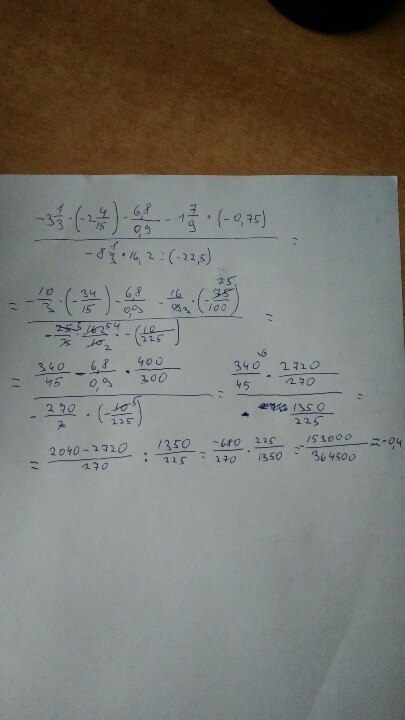 -3 1/3 · (-2 4/15) - 6,8/0,9 - 1 7/9 · (-0,75)
-8 1/3 · 16,2 : (-22,5) =
= -10/3 · (-34/15) - 6,8/0,9 - 16/93 · (-75/100) 25
- 25 5/3 · 162 54/10 2 · -(10/225) =
= 340/45 - 6,8/0,9 · 400/300 = 340/45 · 2720/270
- 270/2 · (-10 5/225) 1350/225 =
= 2040-2720/270 : 1350/225 = -680/270 · 225/1350 = -153000/364500 ≈ -0,4